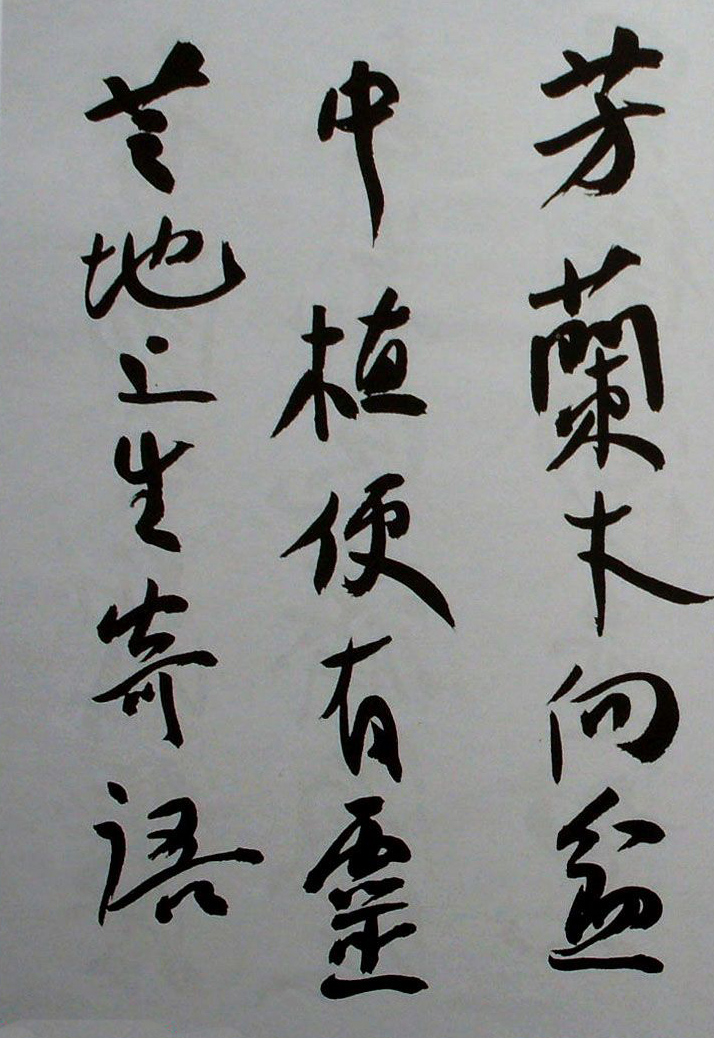 芳蘭木向盆
中植便有靈
芝地上生寄語